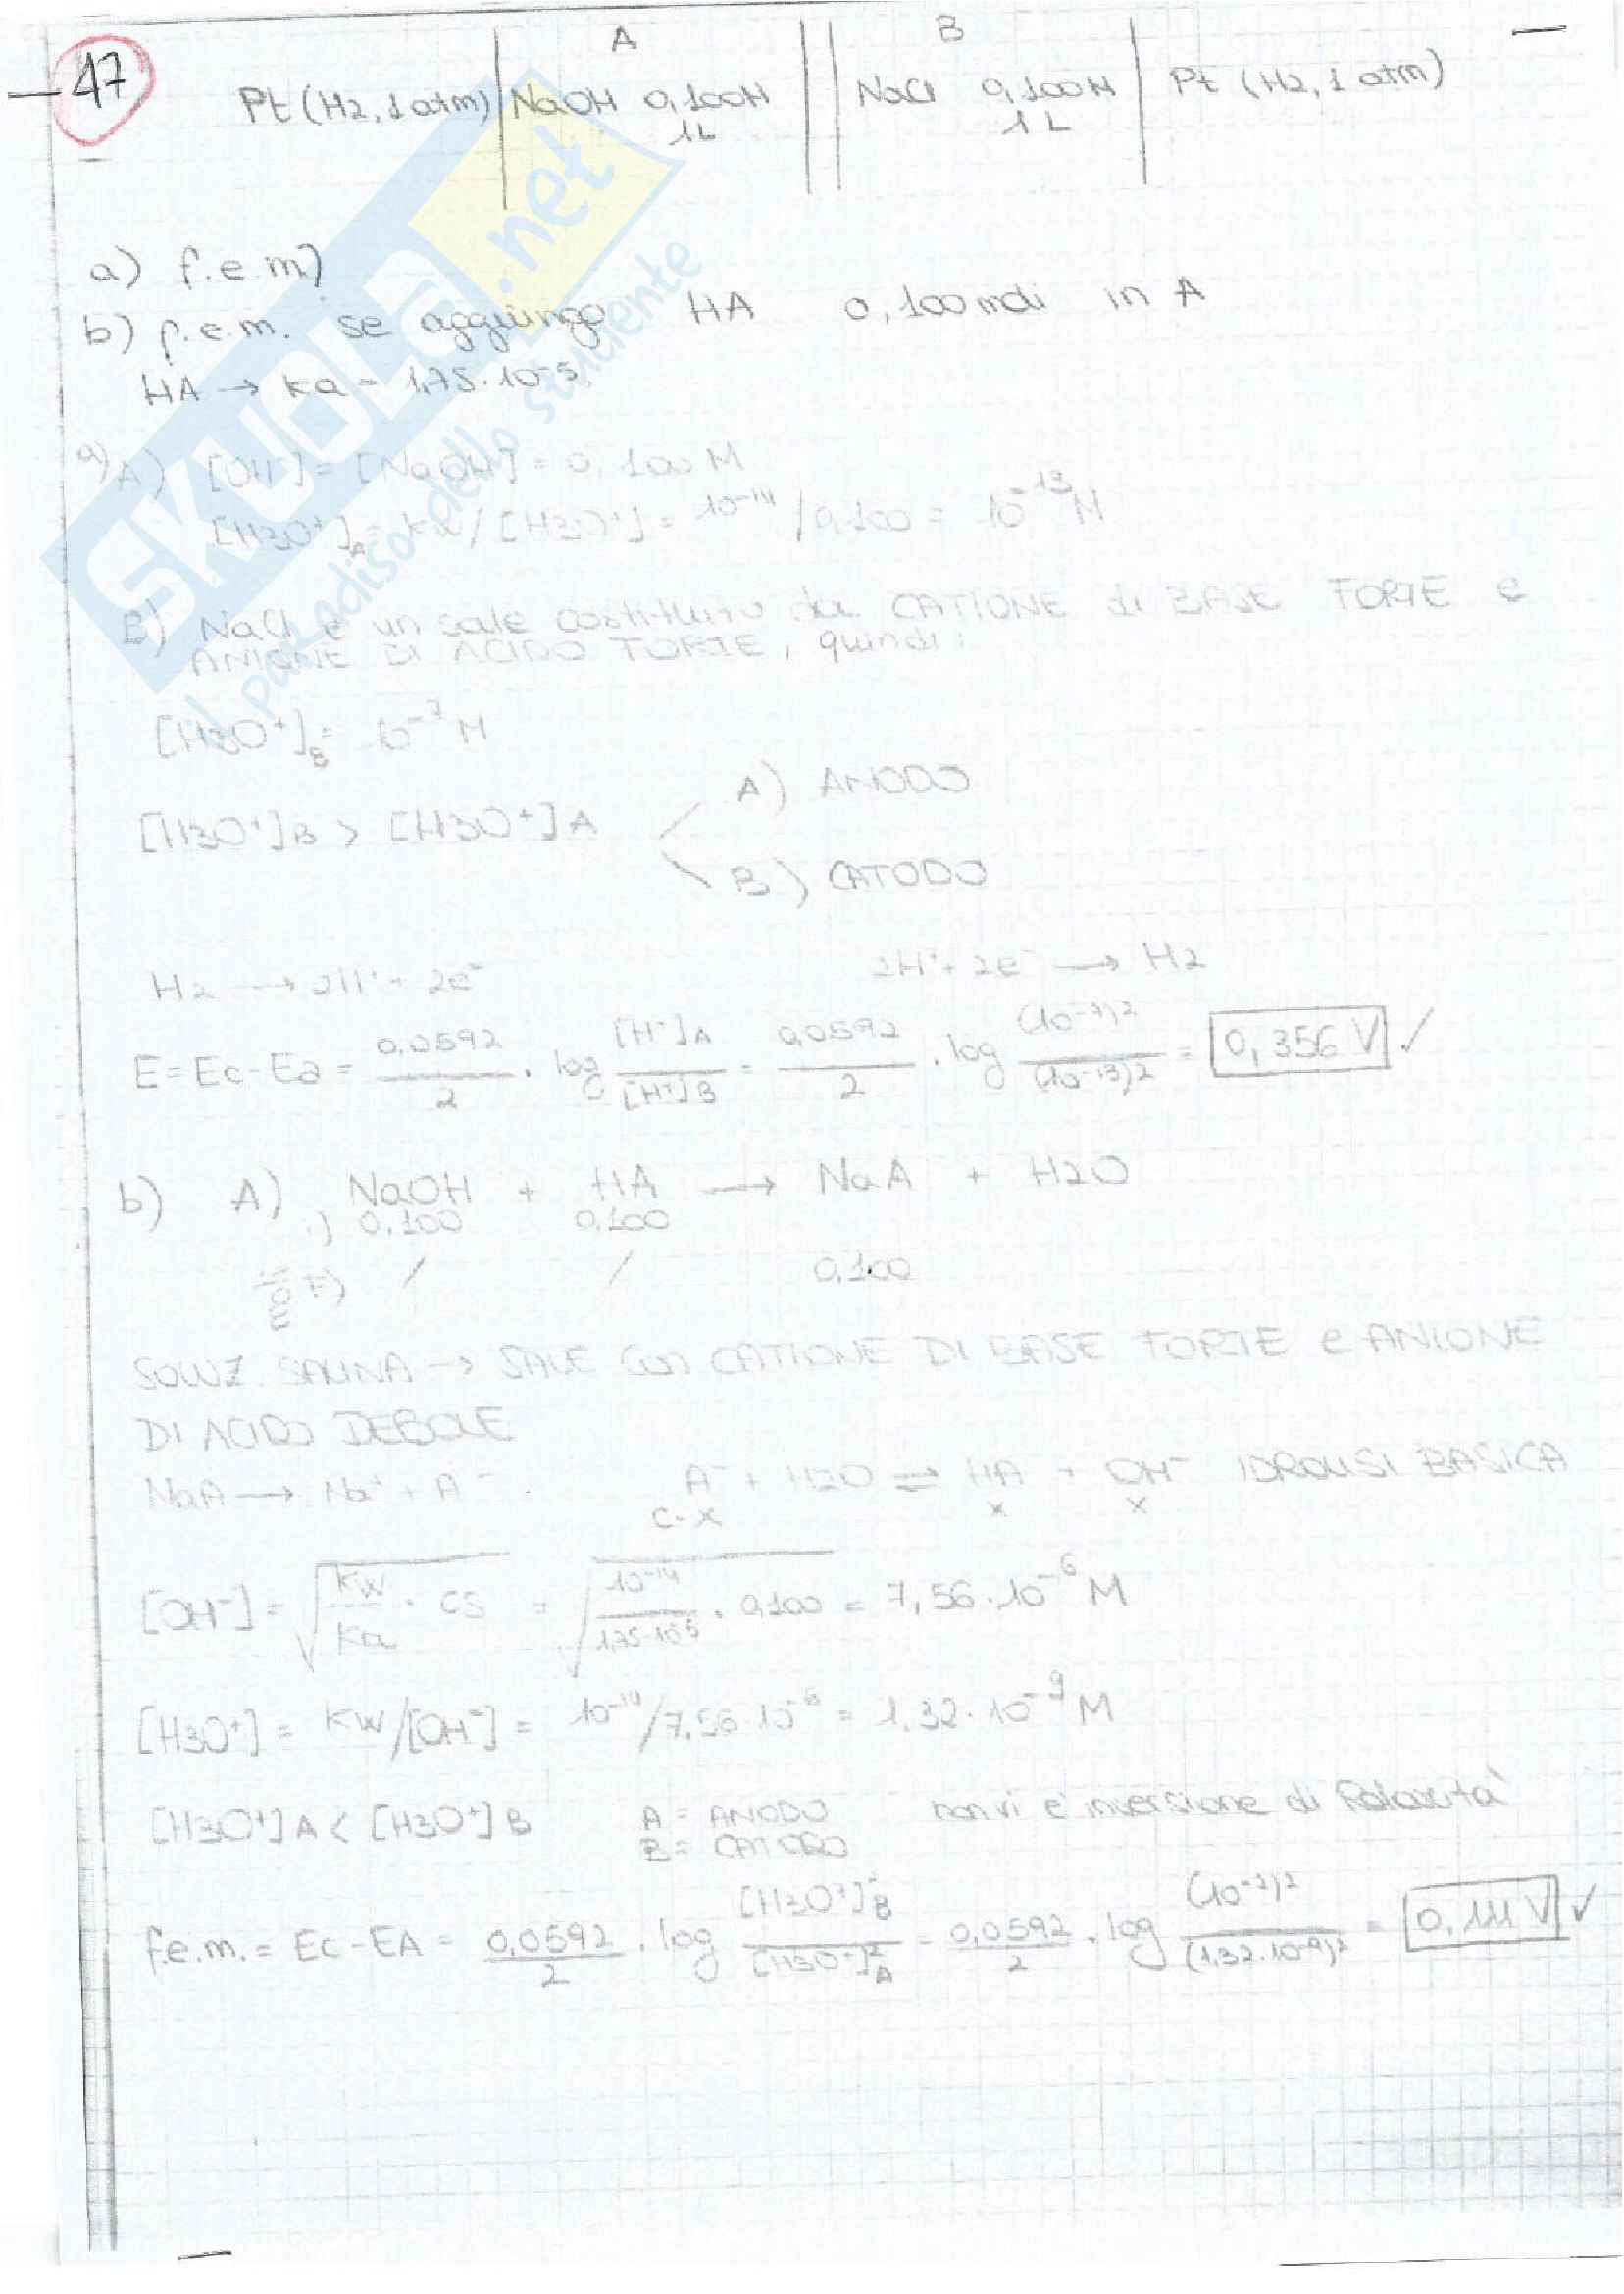 47
A B
Pt (H2, 1 atm) | NaOH 0,100M || NaCl 0,100M | Pt (H2, 1 atm)
1L 1L
a) f.e.m)
b) f.e.m. se aggiungo HA 0,100 moli in A
HA → Ka = 1,75·10⁻⁵
SKUOLA.net
il paradiso dello studente
a) A) [OH⁻] = [NaOH] = 0,100 M
[H3O⁺]A = Kw/[H3O⁺] = 10⁻¹⁴/0,100 = 10⁻¹³ M
B) NaCl è un sale costituito da CATIONE di BASE FORTE e
ANIONE DI ACIDO FORTE, quindi:
[H3O⁺]B = 10⁻⁷ M
A) ANODO
[H3O⁺]B > [H3O⁺]A
B) CATODO
H2 → 2H⁺ + 2e⁻ 2H⁺ + 2e⁻ → H2
E = Ec - Ea = 0,0592/2 · log [H⁺]A/[H⁺]B = 0,0592/2 · log (10⁻⁷)²/(10⁻¹³)² = 0,356 V ✓
b) A) NaOH + HA → NaA + H2O
i) 0,100 0,100
moli F) / / 0,100
SOLUZ. SALINA → SALE con CATIONE DI BASE FORTE e ANIONE
DI ACIDO DEBOLE
NaA → Na⁺ + A⁻ A⁻ + H2O ⇌ HA + OH⁻ IDROLISI BASICA
C-x x x
[OH⁻] = √(Kw/Ka · Cs) = √(10⁻¹⁴/1,75·10⁻⁵ · 0,100) = 7,56·10⁻⁶ M
[H3O⁺] = Kw/[OH⁻] = 10⁻¹⁴/7,56·10⁻⁶ = 1,32·10⁻⁹ M
[H3O⁺]A < [H3O⁺]B A = ANODO non vi è inversione di Polarità
B = CATODO
f.e.m. = Ec - EA = 0,0592/2 · log [H3O⁺]²B/[H3O⁺]²A = 0,0592/2 · log (10⁻⁷)²/(1,32·10⁻⁹)² = 0,111 V ✓